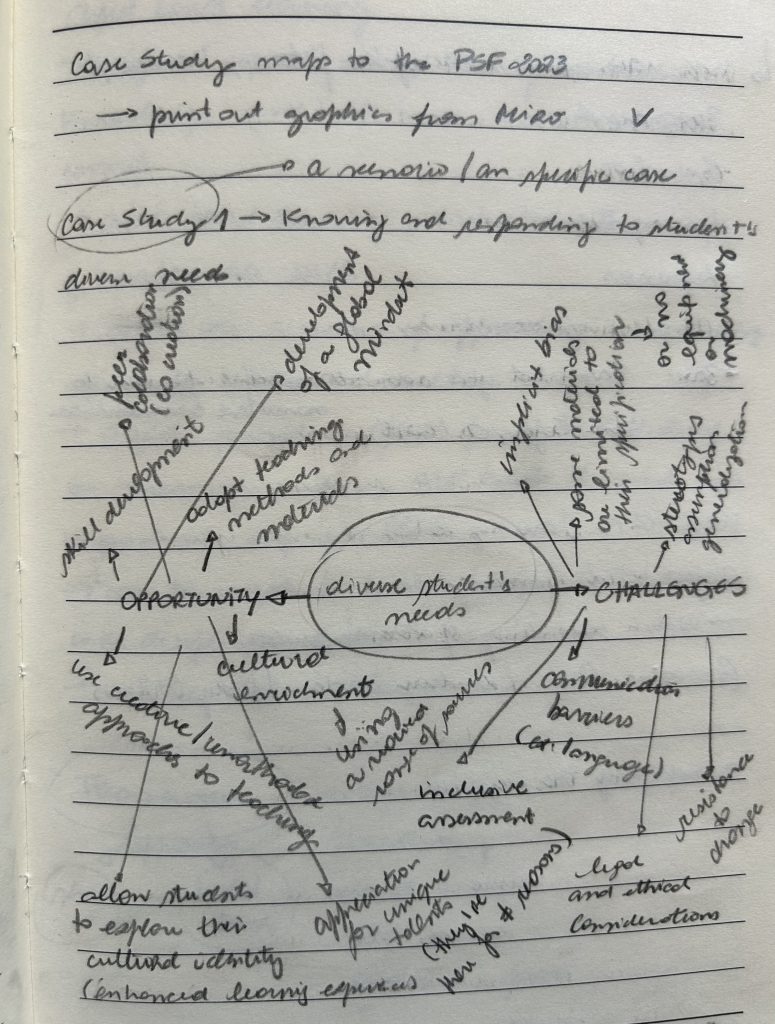 Case Study maps to the PSF 2023
→ print out graphics from Miro V
a scenario / an specific case
Case Study 1 → Knowing and responding to student's
diverse needs
peer
collaboration
(co creation)
development
of a global
mindset
skill development
adapt teaching
methods and
materials
implicit bias
some materials
are limited to
their specification
→ or no
equipment
or
machinery
stereotypes
assumption
generalization
OPPORTUNITY
diverse student's
needs
CHALLENGES
use creative/unorthodox
approaches to teaching
cultural
enrichment
↓
using
a varied
range of sources
communication
barriers
(ex. language)
inclusive
assessment
resistance
to
change
allow students
to explore their
cultural identity
(enhanced learning experiences
appreciation
for unique
talents
(they're
there for ≠ reasons)
legal
and ethical
considerations